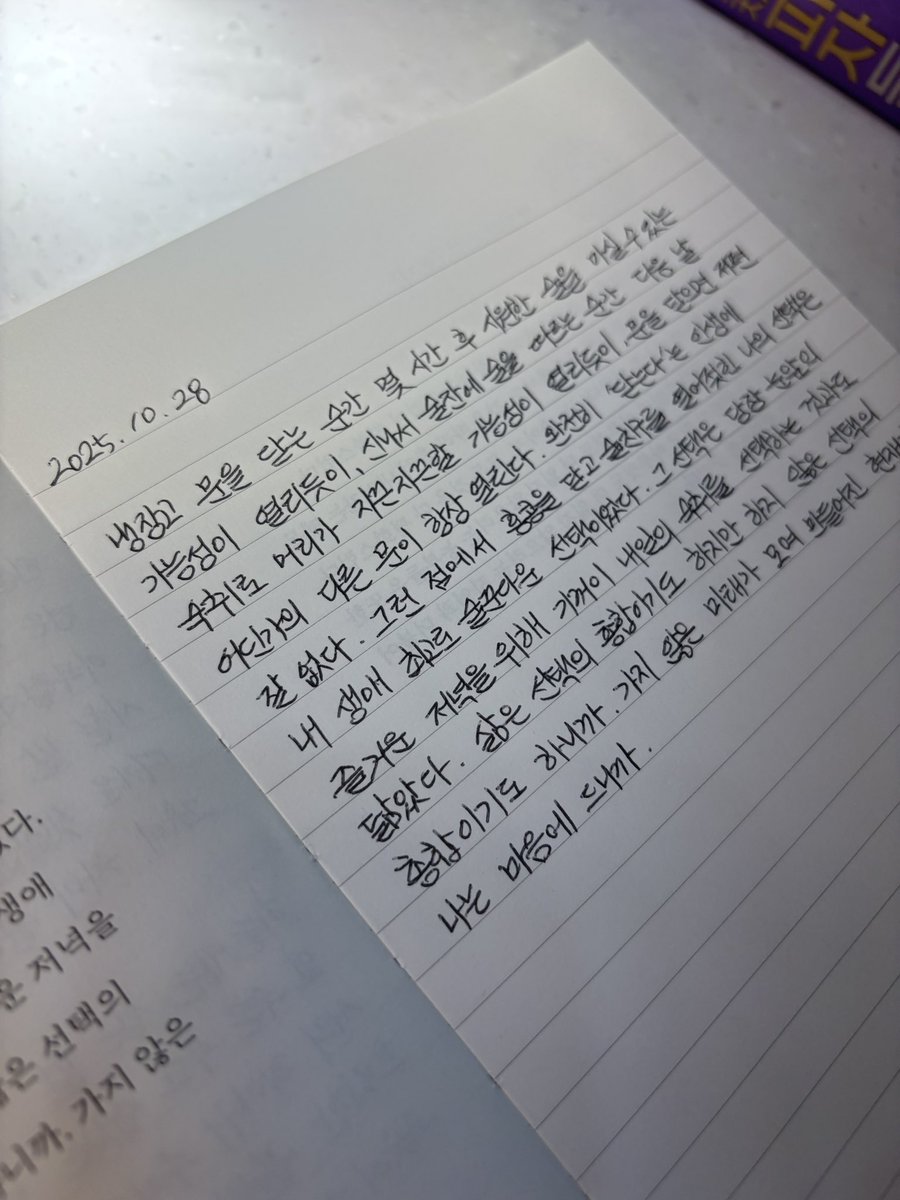 2025.10.28
냉장고 문을 닫는 순간 몇 시간 후 시원한 술을 마실 수 있는
가능성이 열리듯이, 신나서 술잔에 술을 따르는 순간 다음 날
숙취로 머리가 지끈지끈할 가능성이 열리듯이, 문을 닫으면 저편
어딘가의 다른 문이 항상 열린다. 완전히 '닫는다'는 인생에
잘 없다. 그런 점에서 홍콩을 닫고 술친구를 열어젖힌 나의 선택은
내 생애 최고로 술꾼다운 선택이었다. 그 선택은 당장 눈앞의
즐거운 저녁을 위해 기꺼이 내일의 숙취를 선택하는 것과도
닮았다. 삶은 선택의 총합이기도 하지만 하지 않은 선택의
총합이기도 하니까. 가지 않은 미래가 모여 만들어진 현재
나는 마음에 드니까.
생애
저녁을
은 선택의
니까. 가지 않은